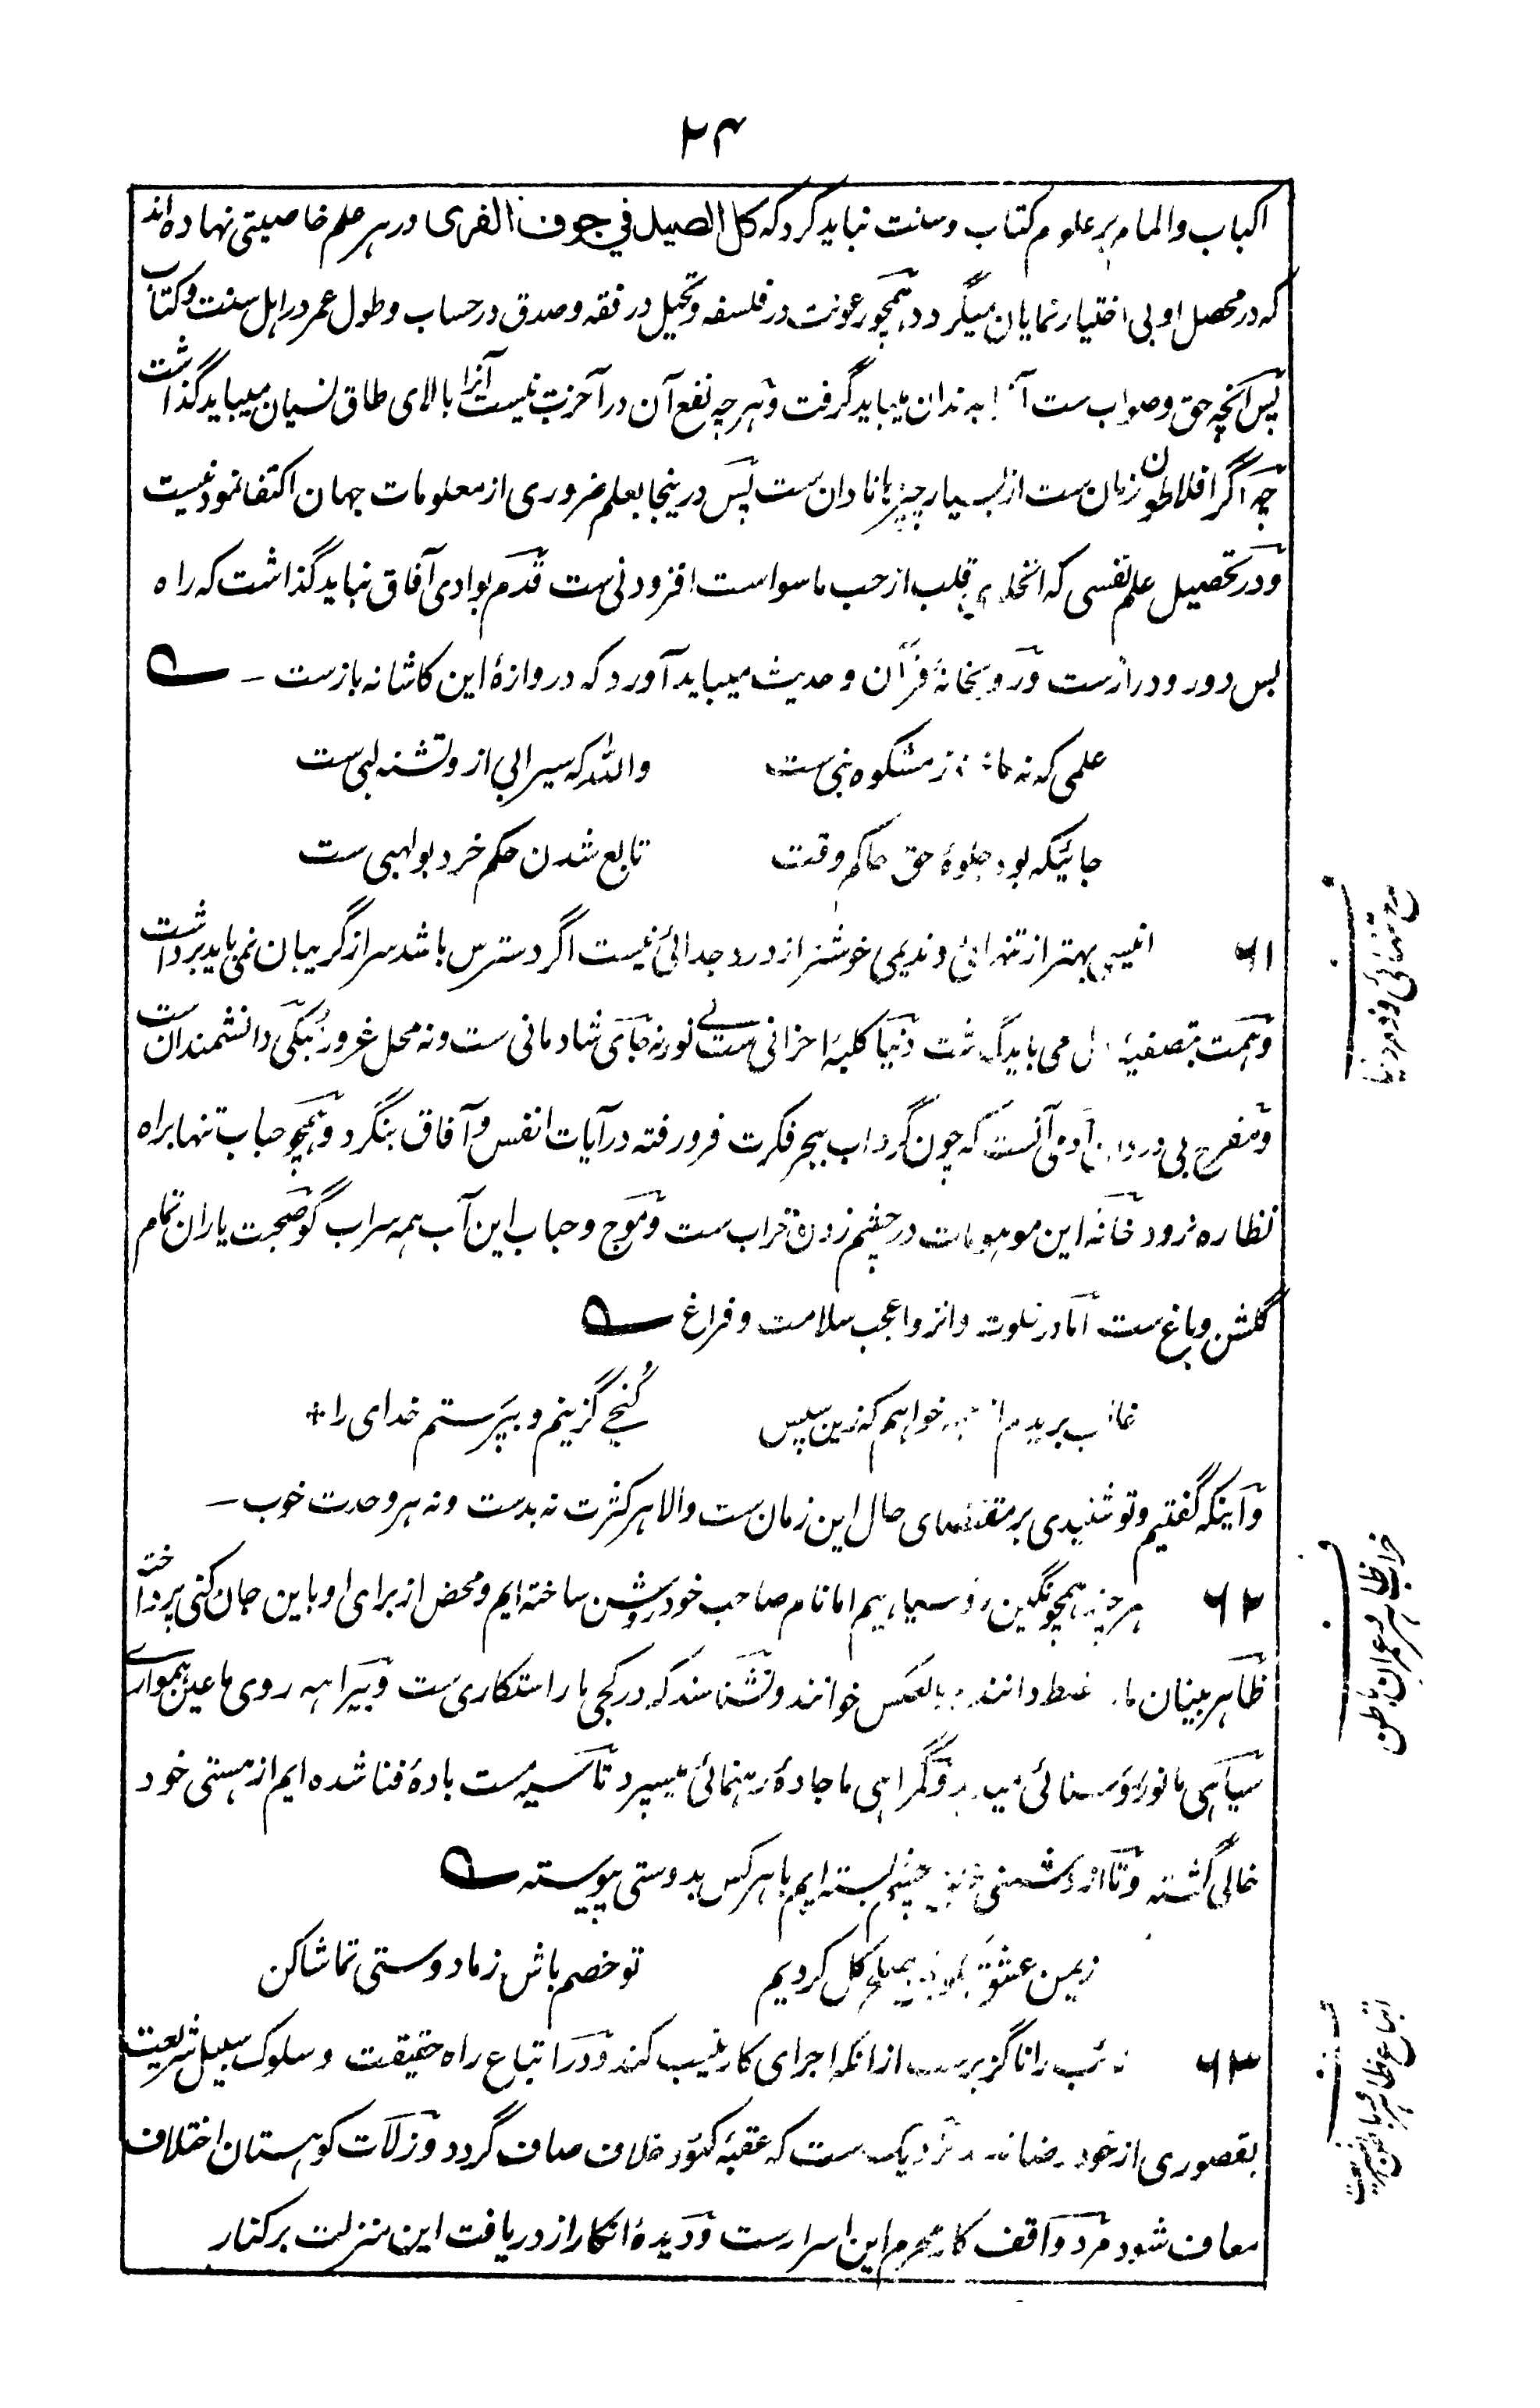 ۲۴
اکباب والمام بر علوم کتاب وسنت نباید کرد که کل الصید في جوف الفری در هر علم خاصیتی نهاده اند
که در محصل او بی اختیار نمایان میگردد همچو رعونت در فلسفه و تحیل در فقه وصدق در حساب وطول عمر در اهل سنت و کتاب
پس آنچه حق وصواب ست بدندان میباید گرفت و هرچه نفع آن در آخرت نیست آنرا بالای طاق نسیان میباید گذاشت
چه اگر افلاطون زمان ست از بسیار چیزها نادان ست پس درینجا بعلم ضروری از معلومات جهان اکتفا نمودنیست
و در تحصیل علم نفسی که قلب از حب ماسواست افزودنی ست قدم بوادی آفاق نباید گذاشت که راه
بس دور و درازست و رو بخانهٔ قرآن و حدیث میباید آورد که دروازهٔ این کاشانه بازست ـ
علمی که نه ز مشکوه نبی ست
والله که سیرابی ازو تشنه لبی ست
جائیکه بود جلوهٔ حق حاکم وقت
تابع شدن حکم خرد بولهبی ست
درد تنهائی و غرور دنیا
۶۱ انیسی بهتر از تنهائی و ندیمی خوشتر از درد جدائی نیست اگر دسترس باشد سر از گریبان نمی باید برداشت
و همت بتصفیهٔ دل می باید گماشت دنیا کلبهٔ احزانی ست بے نور نه جای شادمانی ست و نه محل غرور دانشمندان ست
و متفرج بی دردان آدمی آنست که چون گرداب ببحر فکرت فرو رفته در آیات انفس و آفاق بنگرد و همچو حباب تنها براه
نظاره نرود خانهٔ این موهومات در چشم زدن خراب ست و موج و حباب این آب همه سراب گو صحبت یاران تمام
گلشن و باغ ست اما در خلوت و انزوا عجب سلامت و فراغ
خواهم که زین سپس
کنجے گزینم و بپرستم خدای را
و اینکه گفتیم و تو شنیدی بر مقتضای حال این زمان ست والا هر کثرت نه بدست و نه هر وحدت خوب ـ
خرابی ظاهر و عمران باطن
۶۲ هر چند همچو نگین رو سیاهیم اما نام صاحب خود روشن ساخته ایم و محض از برای او باین جان کنی پرداخته
ظاهر بینان ما را غلط دانند و بالعکس خوانند و نشناسند که در کجی ما راستکاری ست و بیراهه روی ما عین هموارے
سیاهی ما نور روشنائی و گمراهی ما جادهٔ رهنمائی میسپرد تا سیه مست بادهٔ فنا شده ایم از هستی خود
خالی گشته و تا از دشمنی چشم بسته ایم با هر کس بدوستی پیوسته
زمین عشق کل کردیم
تو خصم باش ز ما دوستی تماشا کن
اتباع ظاهر و باطن شریعت
۶۳ نائب را ناگزیرست از آنکه اجرای کار منیب کند و در اتباع راه حقیقت و سلوک سبیل شریعت
بقصوری از خود رضا ندهد نزدیک ست که عقبهٔ کئود خلاف صاف گردد و زلات کوهستان اختلاف
معاف شود مرد واقف کار محرم این اسرارست و دیدهٔ انکار از دریافت این منزلت برکنار